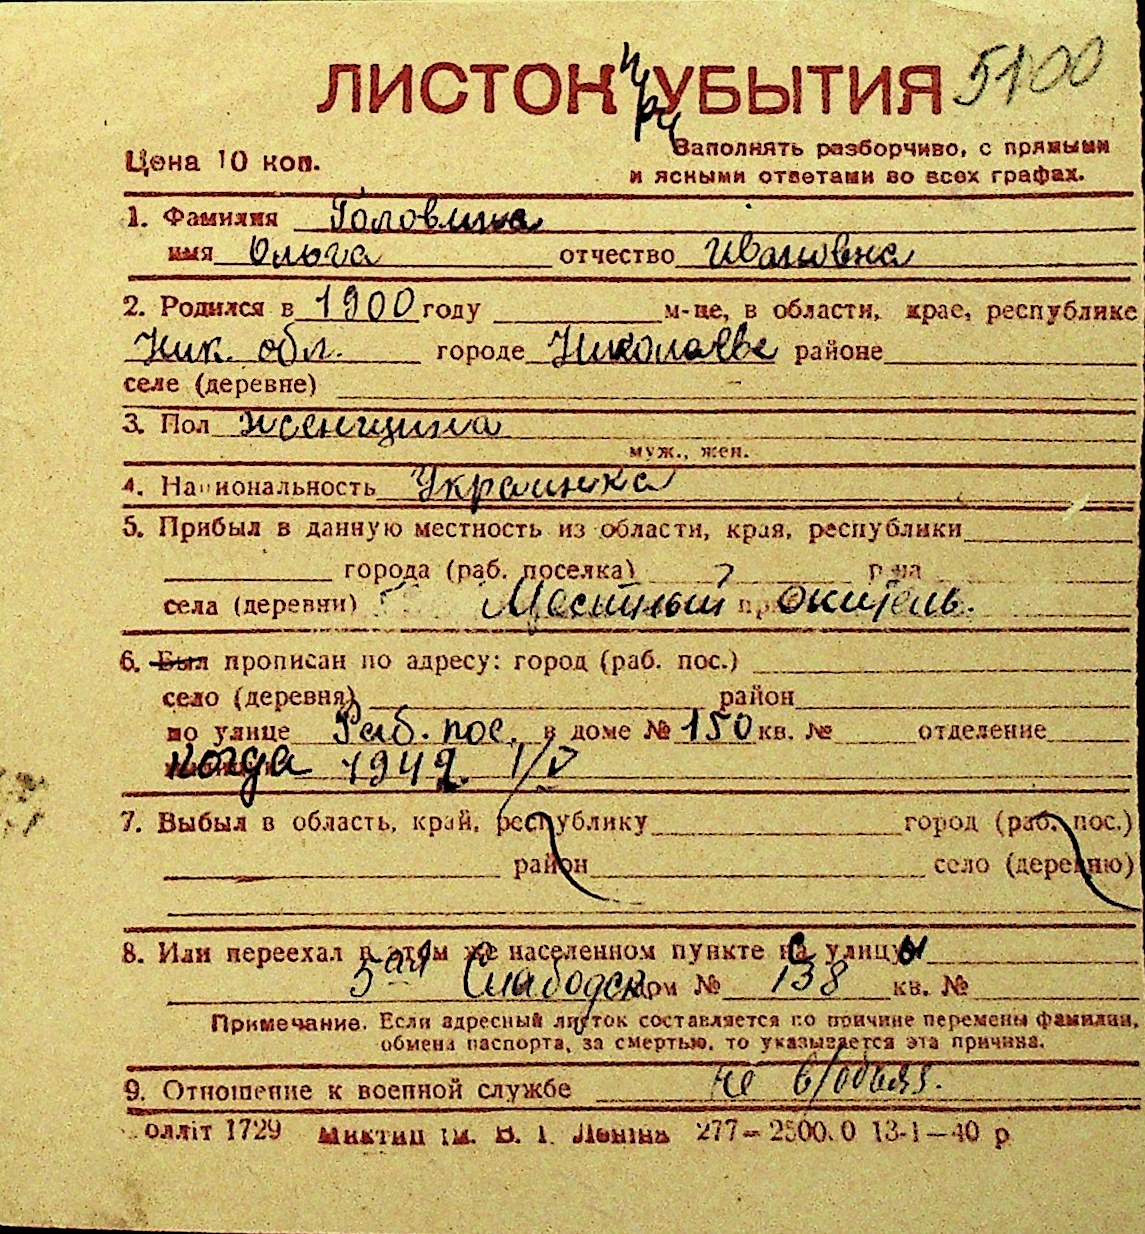 ЛИСТОК УБЫТИЯ 5100
при
Цена 10 коп.
Заполнять разборчиво, с прямыми
и ясными ответами во всех графах.
1. Фамилия Головина
имя Ольга отчество Ивановна
2. Родился в 1900 году м-це, в области, крае, республике
Ник. обл. городе Николаеве районе
селе (деревне)
3. Пол женщина
муж., жен.
4. Национальность Украинка
5. Прибыл в данную местность из области, края, республики
города (раб. поселка) р-на
села (деревни) Местный житель.
6. Был прописан по адресу: город (раб. пос.)
село (деревня) район
по улице Раб. пос. в доме № 150 кв. № отделение
когда 1942 1/V
7. Выбыл в область, край, республику город (раб. пос.)
район село (деревню)
8. Или переехал в этом же населенном пункте на улицу с ы
5-ая Слободск дом № 138 кв. №
Примечание. Если адресный листок составляется по причине перемены фамилии,
обмена паспорта, за смертью, то указывается эта причина.
9. Отношение к военной службе не в/обяз.
олліт 1729 Миктип ім. В. І. Леніна 277—2500.0 13-1—40 р